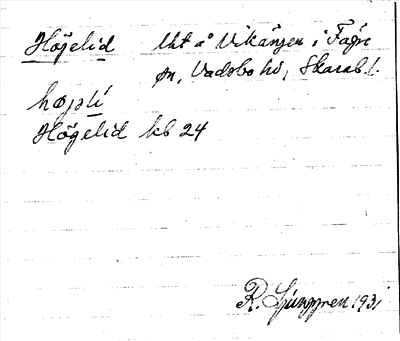 Högelid lht å Vikängen i Fägre
sn, Vadsbo hd, Skarab.l.
højəli
Högelid kb 24
R. Ljunggren 1931